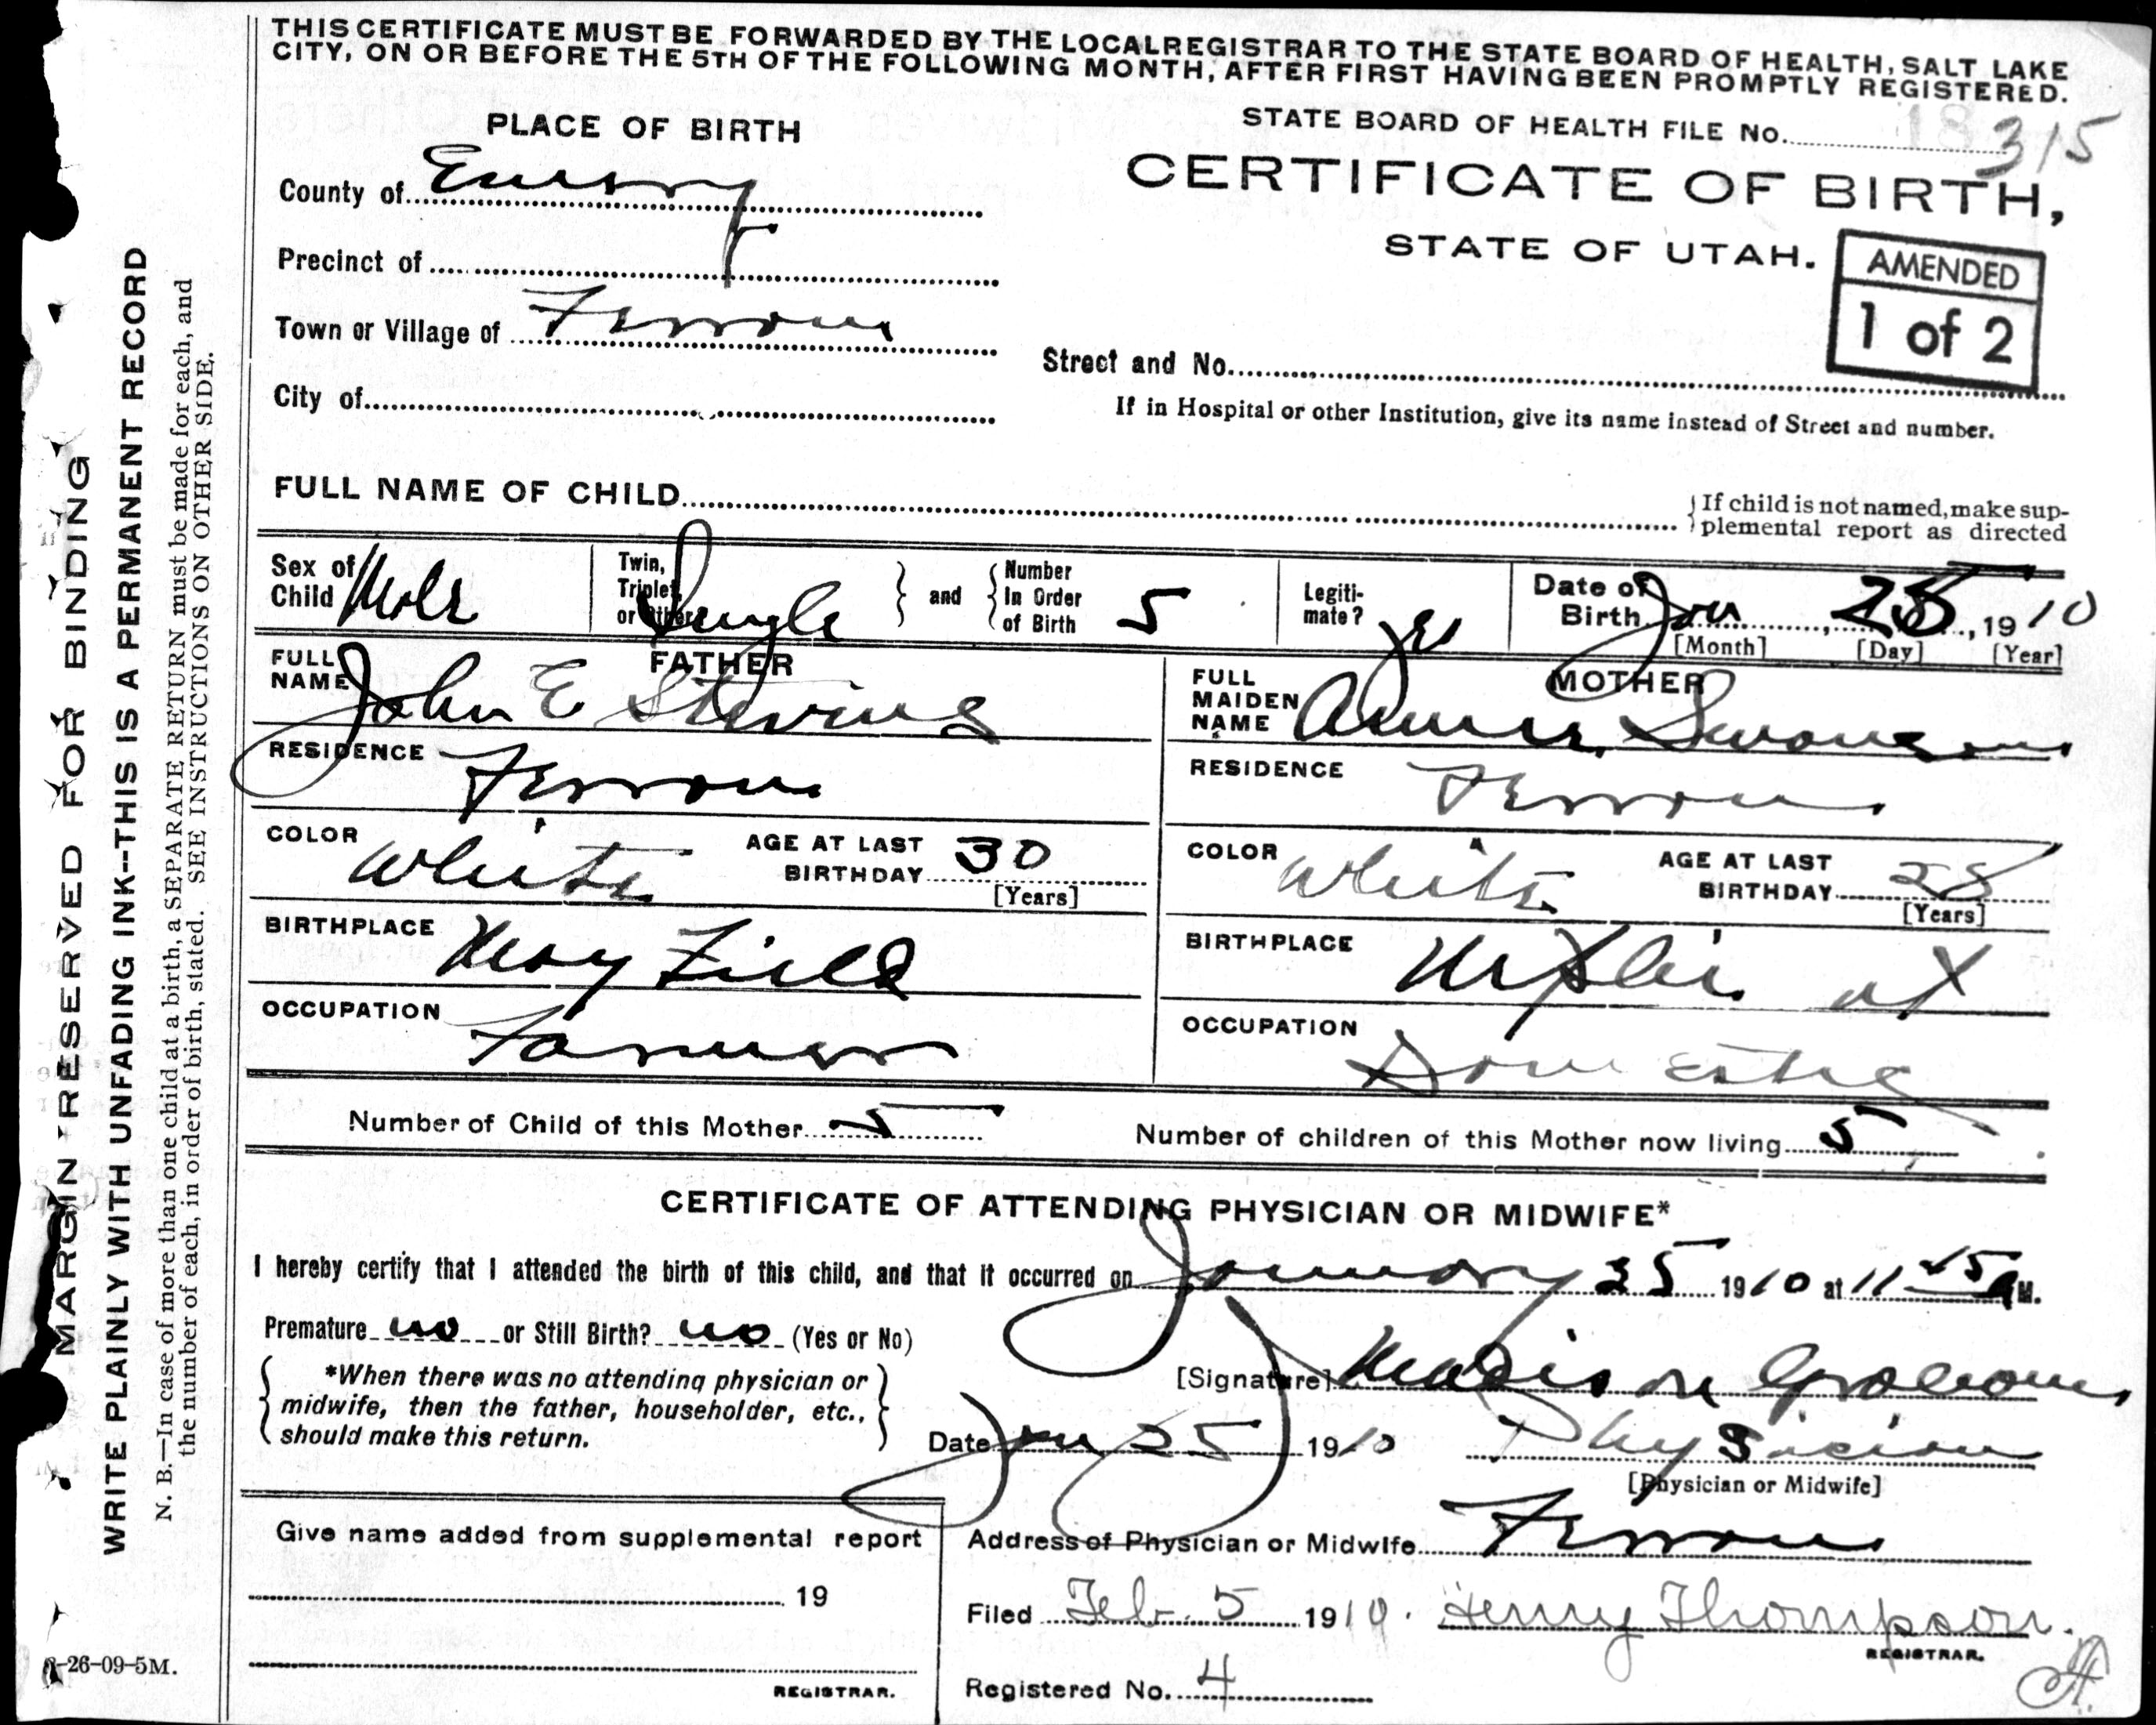 THIS CERTIFICATE MUST BE FORWARDED BY THE LOCAL REGISTRAR TO THE STATE BOARD OF HEALTH, SALT LAKE
CITY, ON OR BEFORE THE 5TH OF THE FOLLOWING MONTH, AFTER FIRST HAVING BEEN PROMPTLY REGISTERED.
PLACE OF BIRTH
STATE BOARD OF HEALTH FILE No. 315
CERTIFICATE OF BIRTH,
STATE OF UTAH.
AMENDED
1 of 2
County of Emery
Precinct of
Town or Village of Ferron
City of
Street and No.
If in Hospital or other Institution, give its name instead of Street and number.
FULL NAME OF CHILD
If child is not named, make sup-
plemental report as directed
Sex of Child Male
Twin, Triplet, or Other Single
and Number In Order of Birth 5
Legiti-mate? yes
Date of Birth Jan 25, 1910
[Month] [Day] [Year]
FATHER
FULL NAME John E Stevens
RESIDENCE Ferron
COLOR White
AGE AT LAST BIRTHDAY 30
[Years]
BIRTHPLACE May Field
OCCUPATION Farmer
MOTHER
FULL MAIDEN NAME Annie Swanson
RESIDENCE Ferron
COLOR White
AGE AT LAST BIRTHDAY 28
[Years]
BIRTHPLACE Nephi ut
OCCUPATION Domestic
Number of Child of this Mother 5
Number of children of this Mother now living 5
CERTIFICATE OF ATTENDING PHYSICIAN OR MIDWIFE*
I hereby certify that I attended the birth of this child, and that it occurred on January 25 1910 at 11 45 a M.
Premature no or Still Birth? no (Yes or No)
*When there was no attending physician or
midwife, then the father, householder, etc.,
should make this return.
[Signature] Madison
Date Jan 25 1910
Physician
[Physician or Midwife]
Give name added from supplemental report
19
REGISTRAR.
Address of Physician or Midwife Ferron
Filed Feb. 5 1910. Henry Thompson.
REGISTRAR.
Registered No. 4
A.
-26-09-5M.
MARGIN RESERVED FOR BINDING
WRITE PLAINLY WITH UNFADING INK--THIS IS A PERMANENT RECORD
N. B.—In case of more than one child at a birth, a SEPARATE RETURN must be made for each, and
the number of each, in order of birth, stated. SEE INSTRUCTIONS ON OTHER SIDE.